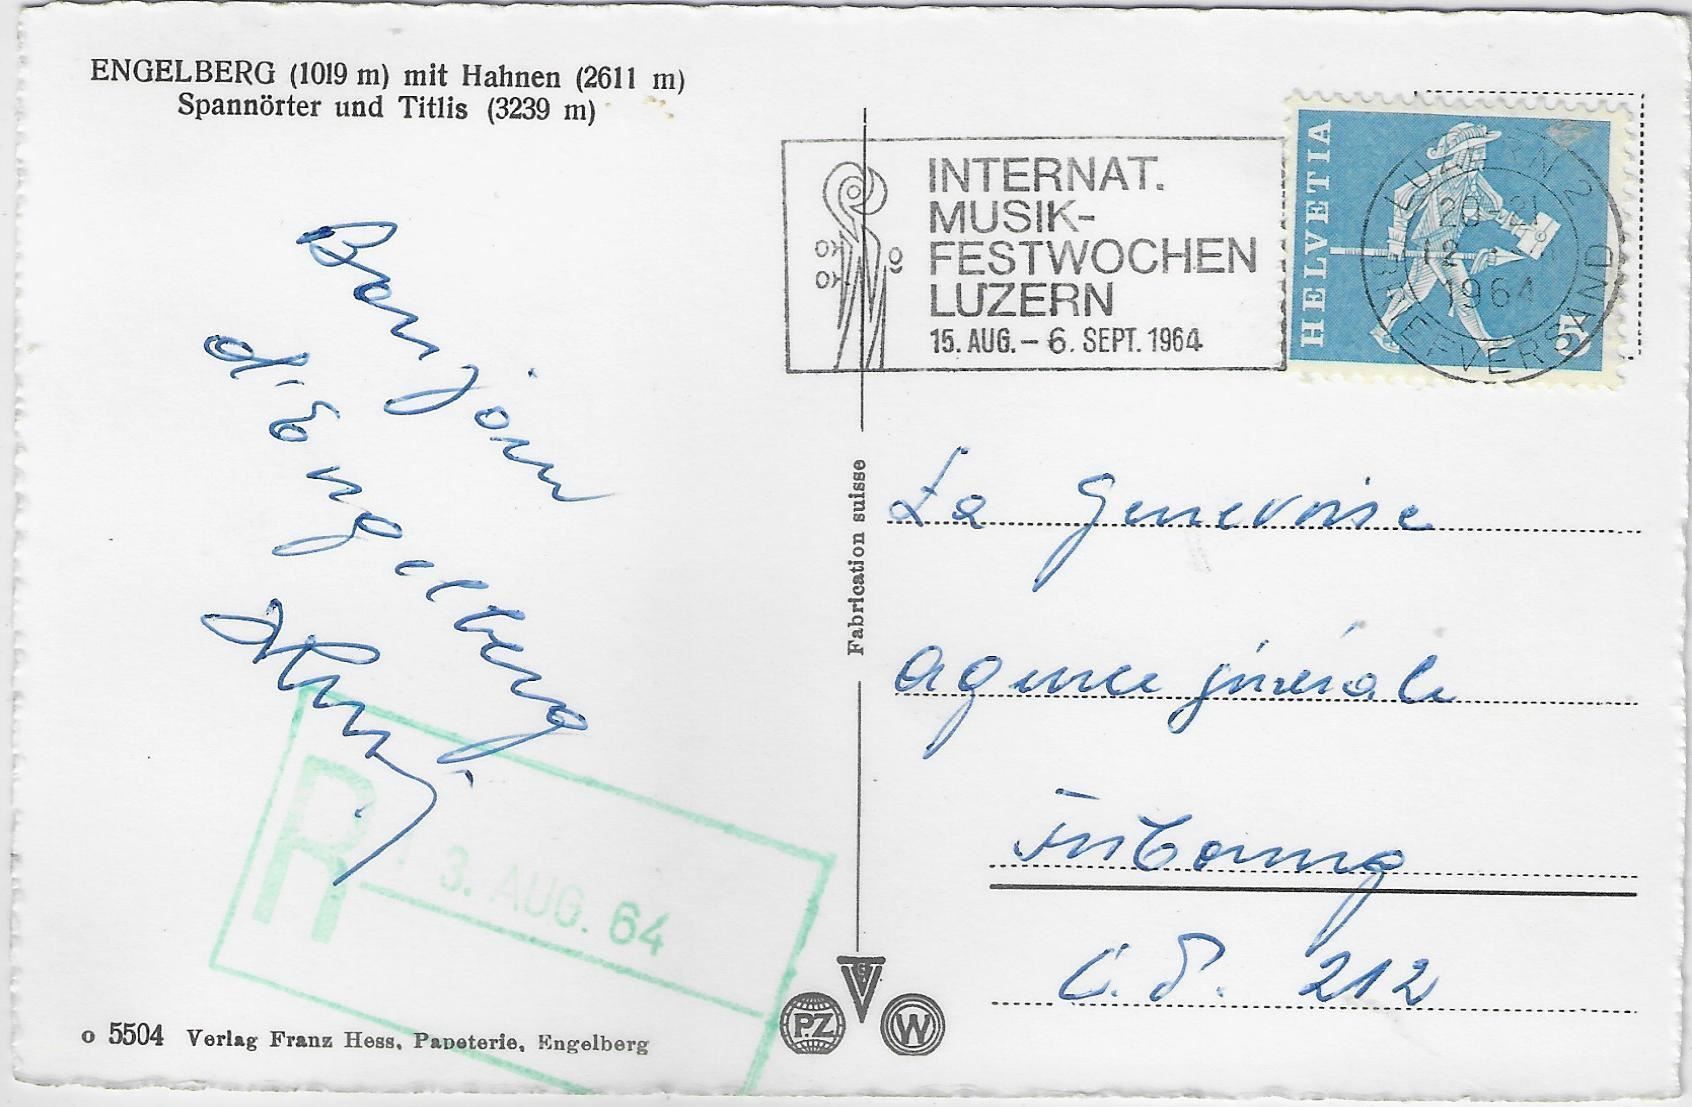 ENGELBERG (1019 m) mit Hahnen (2611 m)
Spannörter und Titlis (3239 m)
INTERNAT.
MUSIK-
FESTWOCHEN
LUZERN
15. AUG. – 6. SEPT. 1964
HELVETIA
5
LUZERN 2
1964
BRIEFVERSAND
Bonjour
d'Engelberg
Fabrication suisse
La Genevoise
Agence générale
Fribourg
C.P. 212
R
13. AUG. 64
PZ
G
V
W
o 5504 Verlag Franz Hess, Papeterie, Engelberg